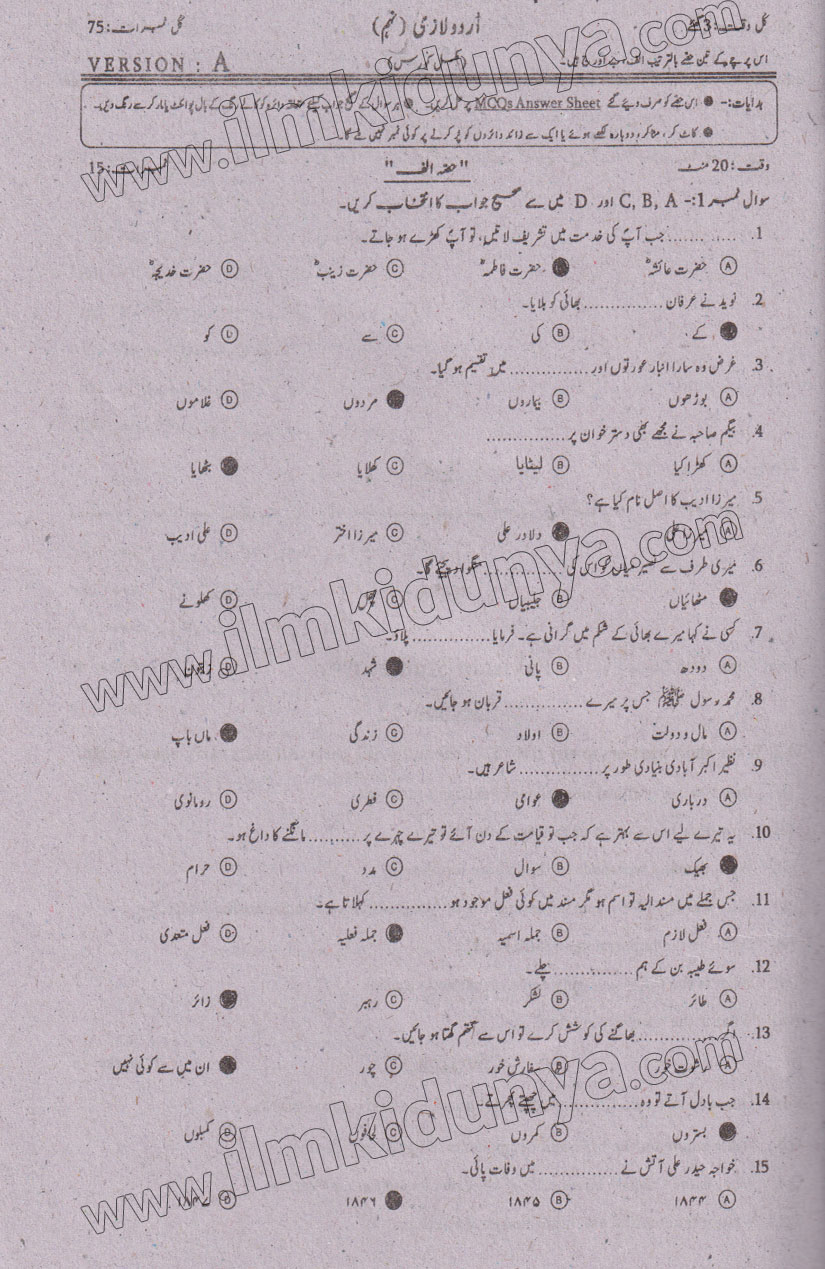 کل وقت: 3 گھنٹے اُردو لازمی (نہم) کل نمبرات: 75
اس پرچے کے تین حصّے بالترتیب الف، ب اور ج ہیں۔ (مکمل کورس) VERSION : A
ہدایات:- ● اس حصّے کو صرف دیئے گئے MCQs Answer Sheet پر حل کریں۔ ● ہر سوال کے صحیح جواب کیلئے متعلقہ دائرہ کو کالے رنگ کے بال پوائنٹ یا مارکر سے رنگ دیں۔
● کاٹ کر، مٹا کر، دوبارہ لکھے ہوئے یا ایک سے زائد دائروں کو پر کرنے پر کوئی نمبر نہیں ملے گا۔
وقت: 20 منٹ "حصّہ الف" نمبرات: 15
سوال نمبر 1:- C, B, A اور D میں سے صحیح جواب کا انتخاب کریں۔
1. ............ جب آپؐ کی خدمت میں تشریف لاتیں، تو آپؐ کھڑے ہو جاتے۔
Ⓐ حضرت عائشہؓ ● حضرت فاطمہؓ Ⓒ حضرت زینبؓ Ⓓ حضرت خدیجہؓ
2. نوید نے عرفان ............ بھائی کو بلایا۔
● کے Ⓑ کی Ⓒ سے Ⓓ کو
3. غرض وہ سارا انبار عورتوں اور ............ میں تقسیم ہو گیا۔
Ⓐ بوڑھوں Ⓑ بیماروں ● مردوں Ⓓ غلاموں
4. بیگم صاحبہ نے مجھے بھی دستر خوان پر ............
Ⓐ کھڑا کیا Ⓑ لیٹایا Ⓒ کھلایا ● بٹھایا
5. میرزا ادیب کا اصل نام کیا ہے؟
Ⓐ علی ● دلاور علی Ⓒ میرزا اختر Ⓓ علی ادیب
6. میری طرف سے کو اس کی ............ منگوا دیجئے گا۔
● مٹھائیاں Ⓑ جلیبیاں Ⓒ پھل Ⓓ کھلونے
7. کسی نے کہا میرے بھائی کے شکم میں گرانی ہے۔ فرمایا ............ پلاؤ۔
Ⓐ دودھ Ⓑ پانی ● شہد Ⓓ زیتون
8. محمد رسول ﷺ جس پر میرے ............ قربان ہو جائیں۔
Ⓐ مال و دولت Ⓑ اولاد Ⓒ زندگی ● ماں باپ
9. نظیر اکبر آبادی بنیادی طور پر ............ شاعر ہیں۔
Ⓐ درباری ● عوامی Ⓒ فطری Ⓓ رومانوی
10. یہ تیرے لیے اس سے بہتر ہے کہ جب تو قیامت کے دن آئے تو تیرے چہرے پر ......... مانگنے کا داغ ہو۔
● بھیک Ⓑ سوال Ⓒ مدد Ⓓ حرام
11. جس جملے میں مسند الیہ تو اسم ہو مگر مسند میں کوئی فعل موجود ہو ............ کہلاتا ہے۔
Ⓐ فعل لازم Ⓑ جملہ اسمیہ ● جملہ فعلیہ Ⓓ فعل متعدی
12. سوئے طیبہ بن کے ہم ............ چلے۔
Ⓐ طائر Ⓑ لشکر Ⓒ رہبر ● زائر
13. اگر ............ بھاگنے کی کوشش کرے تو اس سے گتھم گتھا ہو جائیں۔
Ⓐ رشوت خور Ⓑ سفارش خور Ⓒ چور ● ان میں سے کوئی نہیں
14. جب بادل آتے تو وہ ............ میں چھپتے پھرتے۔
● بستروں Ⓑ کمروں Ⓒ لحافوں Ⓓ کمبلوں
15. خواجہ حیدر علی آتش نے ............ میں وفات پائی۔
Ⓐ ۱۸۴۴ Ⓑ ۱۸۴۵ ● ۱۸۴۶ Ⓓ ۱۸۴۷
www.ilmkidunya.com
www.ilmkidunya.com
www.ilmkidunya.com